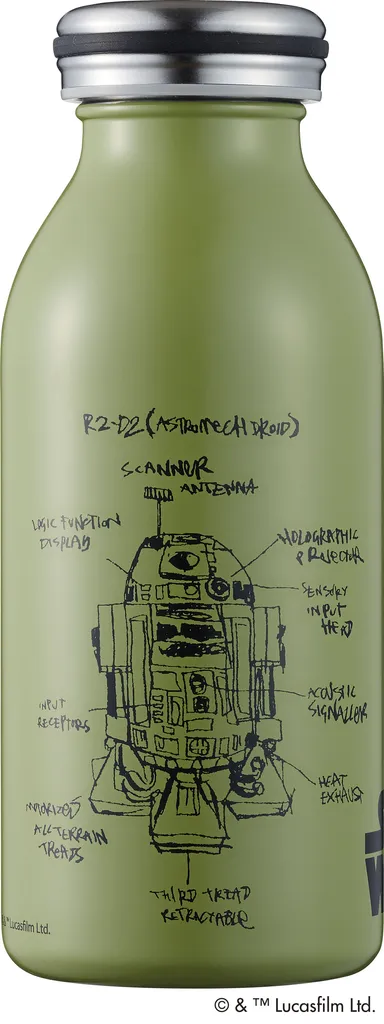 R2-D2 (ASTROMECH DROID)
SCANNER
ANTENNA
LOGIC FUNCTION
DISPLAY
HOLOGRAPHIC
PROJECTOR
SENSORY
INPUT
HEAD
INPUT
RECEPTORS
ACOUSTIC
SIGNALLER
HEAT
EXHAUST
MOTORIZED
ALL TERRAIN
TREADS
THIRD TREAD
RETRACTABLE
& ™ Lucasfilm Ltd.
© & ™ Lucasfilm Ltd.